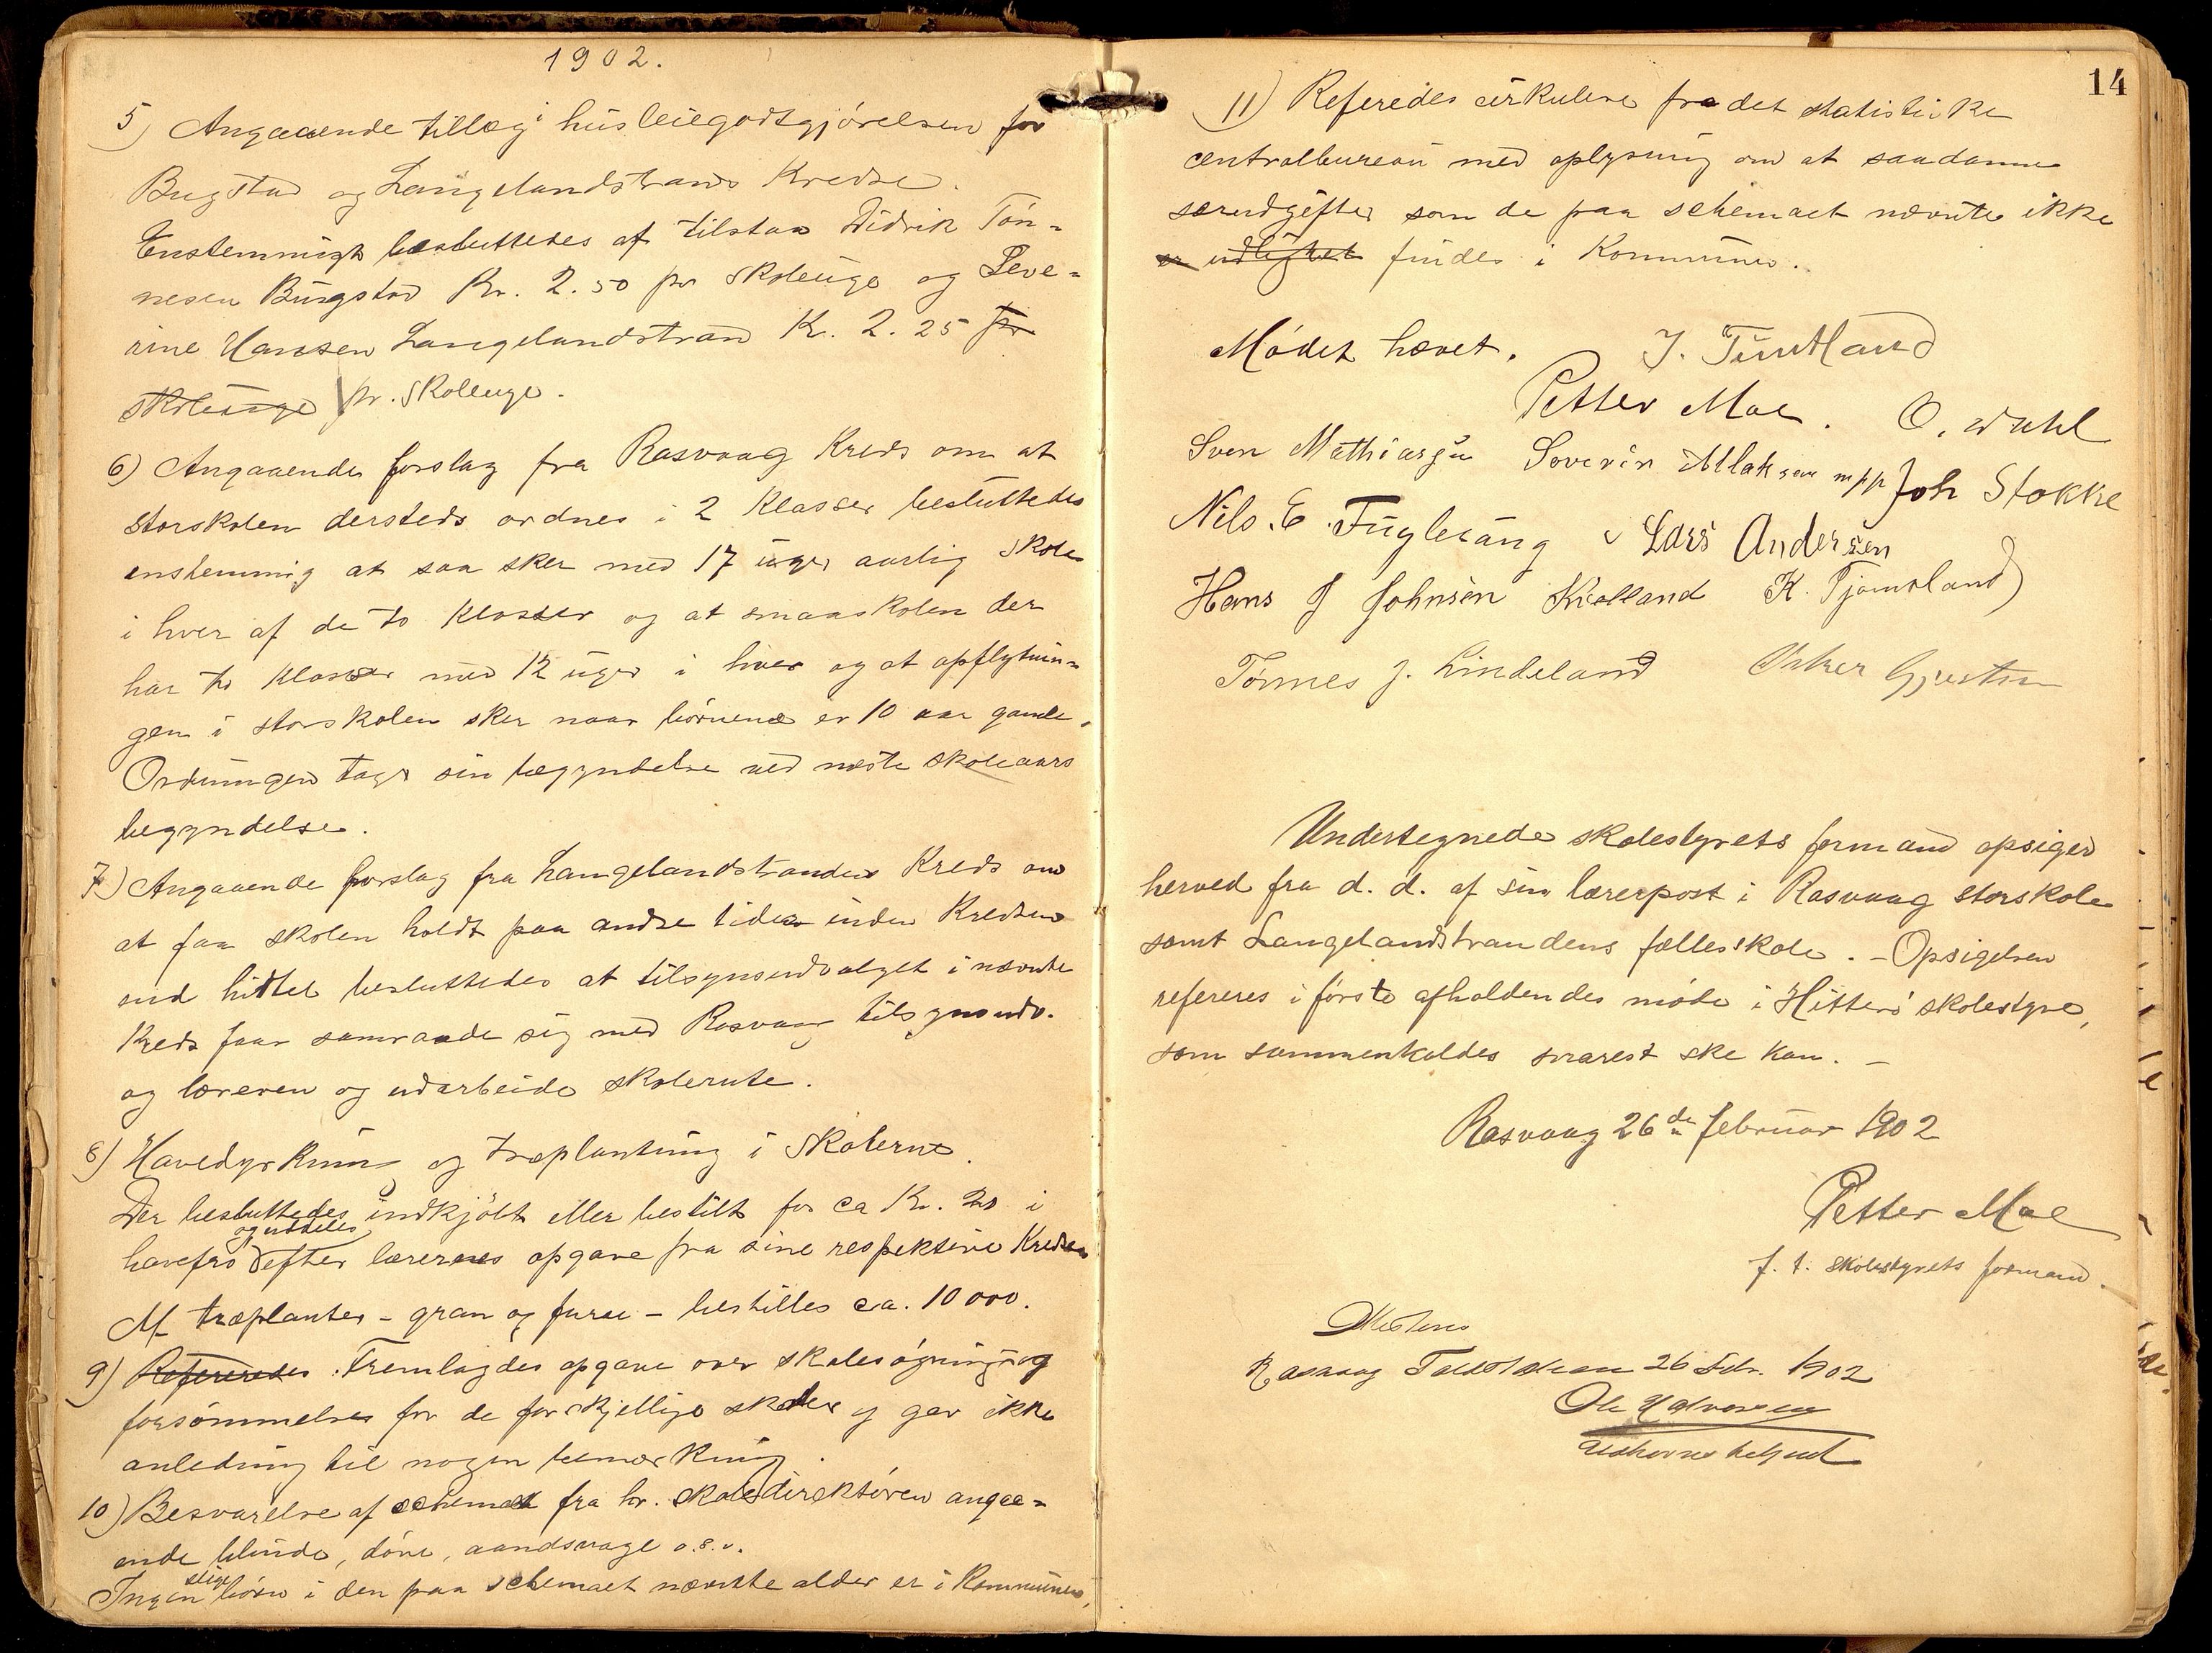 1902.
5) Angaaende tillæg i husleiegodtgjørelsen for
Bugstad og Langelandstrands Kredse.
Enstemmigt besluttedes at tilstaa Didrik Tøn-
nesen Bugstad Kr. 2.50 pr skoleuge og Seve-
rine Hansen Langelandstrand Kr. 2.25 pr
skoleuge pr. skoleuge.
6) Angaaende forslag fra Rasvaag Kreds om at
storskolen dersteds ordnes i 2 klasser besluttedes
enstemmig at saa sker med 17 uger aarlig skole
i hver af de to klasser og at smaaskolen der
har to klasser med 12 uger i hver og at opflytnin-
gen i storskolen sker naar børnene er 10 aar gamle.
Ordningen tager sin begyndelse ved næste skoleaars
begyndelse.
7) Angaaende forslag fra Langelandstrandens Kreds om
at faa skolen holdt paa andre tider inden Kredsen
end hidtil besluttedes at tilsynsudvalget i nævnte
Kreds faar samraade sig med Rasvaag tilsynsudv.
og læreren og udarbeide skolerute.
8) Havedyrkning og træplantning i skolerne.
Der besluttedes indkjøbt eller bestilt for ca Kr. 20 i
og uddeles
havefrø efter lærernes opgave fra sine respektive Kredse
Af træplanter - gran og furu - bestilles ca. 10000.
9) Refereredes. Fremlagdes opgave over skolesøgning og
forsømmelser for de forskjellige skoler og gav ikke
anledning til nogen bemærkning.
10) Besvarelse af schemat fra hr. skoledirektøren angaa-
ende blinde, døve, aandssvage o.s.v.
slige
Ingen børn i den paa schemaet nævnte alder er i Kommunen.
14
11) Referedes cirkulære fra det statistiske
centralbureau med oplysning om at saadanne
særudgifter som de paa schemaet nævnte ikke
er udlignet findes i Kommunen.
Mødet hævet. J. Tuntland
Petter Moe. O. Wahl
Sven Mathiassen Severin Islaksen mpp Joh Stokke
Nils. E. Fuglevaug Lars Andersen
Hans J Johnsen Kielland K. Tjomsland
Tønnes J. Lindeland Gjertsen
Undertegnede skolestyrets formand opsiger
herved fra d. d. af sin lærerpost i Rasvaag storskole
samt Langelandstrandens fællesskole. - Opsigelsen
refereres i første afholdendes møde i Hitterø skolestyre,
som sammenkaldes snarest ske kan. -
Rasvaag 26de februar 1902
Petter Moe
f. t. skolestyrets formand.
Attesteres
Rasvaag 26 Febr. 1902
Ole Halvorsen